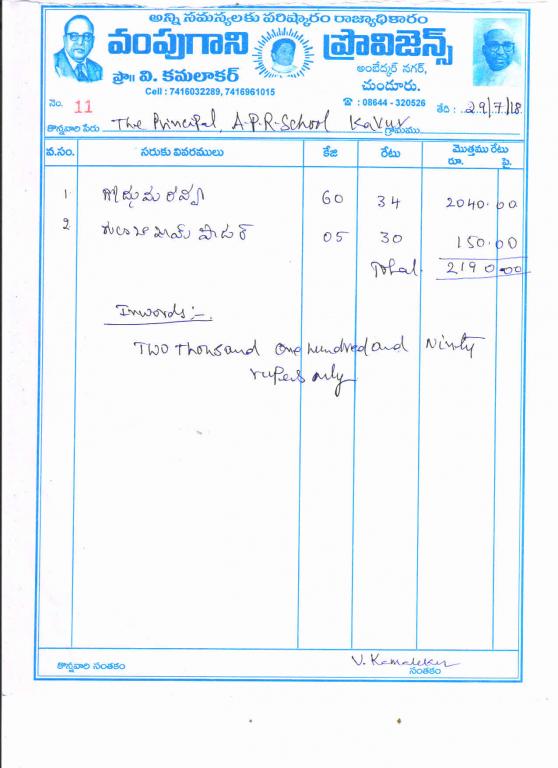 అన్ని సమస్యలకు పరిష్కారం రాజ్యాధికారం
వంపుగాని ప్రొవిజెన్స్
ప్రొ॥ వి. కమలాకర్
అంబేద్కర్ నగర్,
చుండూరు.
Cell : 7416032289, 7416961015
☎ : 08644 - 320526
నెం. 11
తేది : 29/7/18
కొన్నవారి పేరు The Principal, A.P.R-School Kavur గ్రామము
వ.సం. సరుకు వివరములు కేజి రేటు మొత్తము రేటు రూ. పై.
1 గోధుమ రవ్వ 60 34 2040.00
2 05 30 150.00
Total 2190.00
Inwords :-
Two thousand one hundred and Ninty
rupees only
V. Kamalekur
కొన్నవారి సంతకం సంతకం